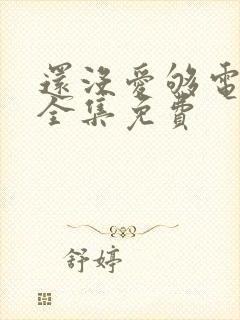 還沒愛够電
全集免費
舒婷